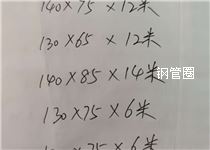 140×75×12米
130×65×12米
140×85×14米
钢管圈
130×75×6米
×75×6米